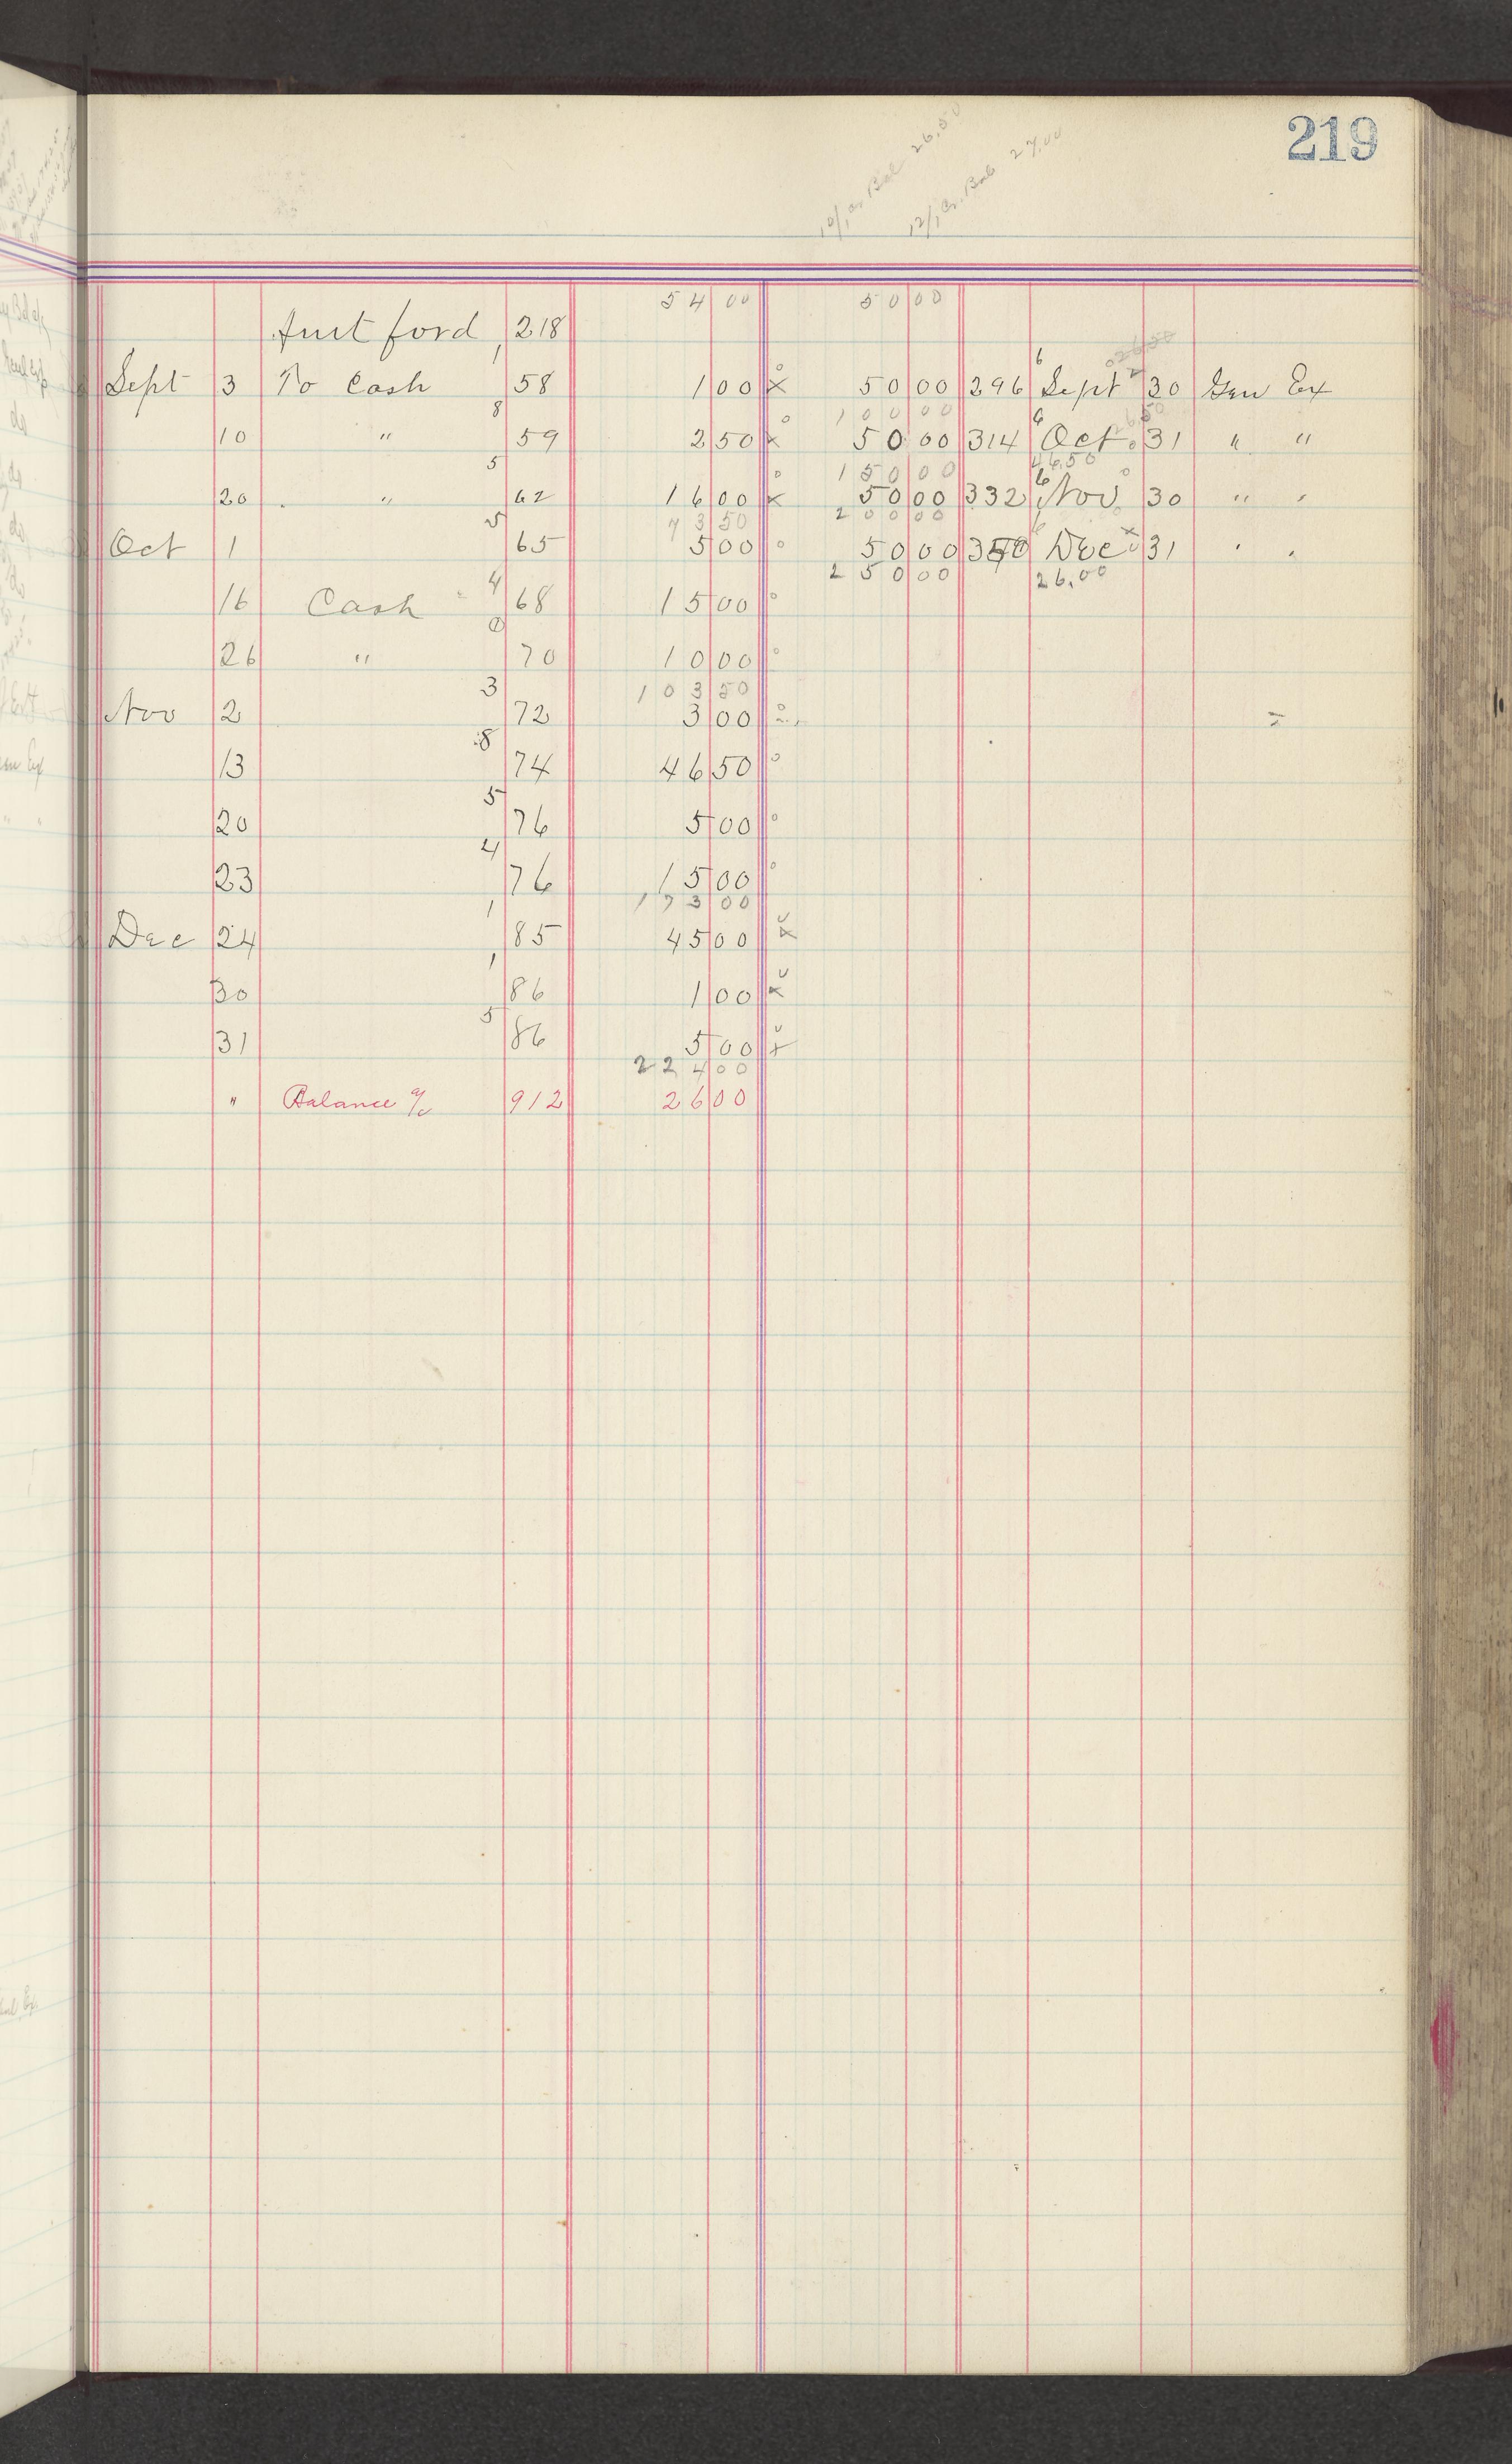 219
10/1 Cr Bal 26.50
12/1 Cr. Bal 27.00
54 00 50 00
Amt ford 218
Sept 3 To Cash 1 58 1 00 x 50 00 296 6 Sept 30 Gen Ex
100 00
10 " 8 59 2 50 x 50 00 314 6 Oct 31 " "
150 00 46.50
20 " 5 62 16 00 x 50 00 332 6 Nov 30 " "
73 50 200 00
Oct 1 5 65 5 00 50 00 350 Dec 31 " "
250 00 26.00
16 Cash 4 68 15 00
26 " 0 70 10 00
103 50
Nov 2 3 72 3 00
13 8 74 46 50
20 5 76 5 00
23 4 76 15 00
173 00
Dec 24 1 85 45 00 x
30 1 86 1 00 x
31 5 86 5 00 x
224 00
" Balance a/c 912 26 00